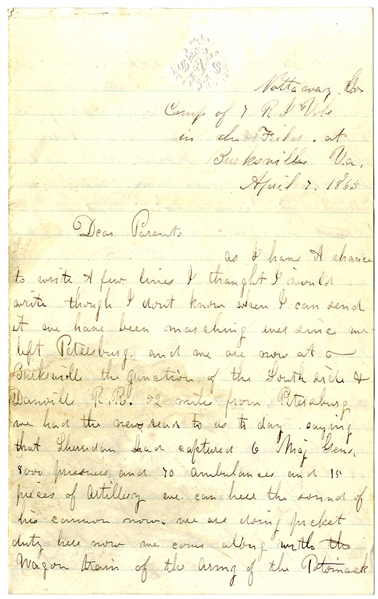 Nottaway Co
Camp of 7 R I Vols
in the Field at
Burksville Va.
April 7. 1865
Dear Parents
as I have A chance
to write A few lines I thought I would
write though I dont know when I can send
it we have been marching ever since we
left Petesburg, and we are now at
Burksville the junction of the South side &
Danville R.R. 52 miles from Petersburg
we had the news read to us to day saying
that Sheridan had captured 6 Maj Gens,
8000 prisoners and 70 ambulances and
pieces of Artillery we can here the sound of
his cannon now. we are doing picket
duty here now we come along with the
Wagon train of the Army of the Potomack